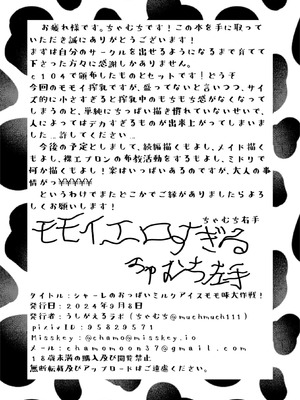 お疲れ様です。ちゃむちです！この本を手に取って
いただき誠にありがとうございます！
まずは自分のサークルを出せるようになるまで育てて
下さった方々に感謝しかありません。
c104で頒布したものとセットです！どうぞ
今回のモモイ搾乳ですが、盛ってないと言いつつ、サイ
ズ的に小さすぎると搾乳中のもちもち感がなくなって
しまうのと、単純にちっぱい描き慣れていないせいで、
人によってはデカすぎるものが出来上がってしまいまし
た...許してください...
今後の予定としまして、続編描くもよし、メイド描く
もよし、裸エプロンの布教活動をするもよし、ミドリで
何か描くもよし！案はいっぱいあるのですが、大人の事
情がっ¥¥¥¥¥
というわけでまたどこかでご縁がありましたらよろ
しくお願いします！
ちゃむち右手
モモイエロすぎる
ちゃむち左手
タイトル：シャーレのおっぱいミルクアイスモモ味大作戦！
発行日：2024年9月8日
発行者：うしがえるラボ（ちゃむち@muchmuch111）
pixivID：95829571
Misskey：@chamo@misskey.io
メール：chamomoon37@gmail.com
18歳未満の購入及び閲覧禁止
無断転載及びアップロードはご遠慮ください。